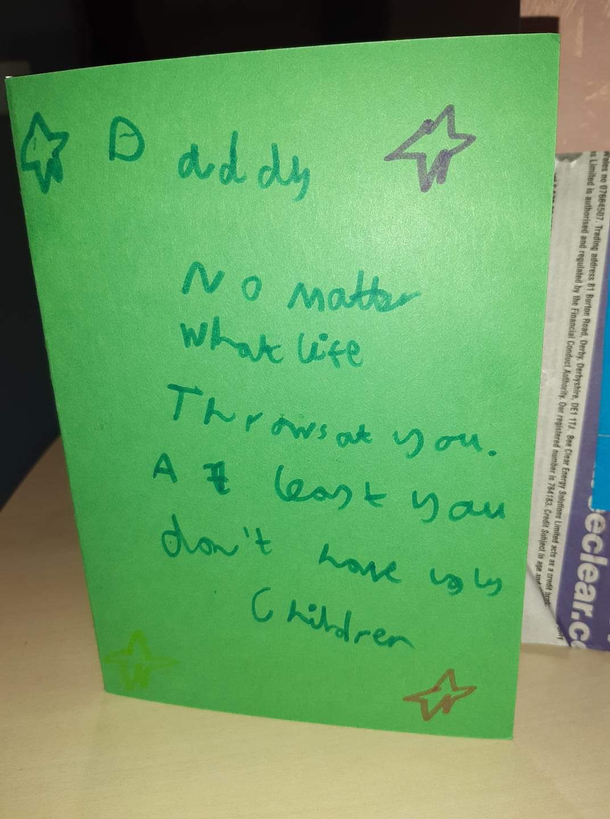 Daddy
No matter
What life
Throws at you.
At least you
don't have ugly
Children
Wales no 07684507. Trading address 81 Burton Road, Derby, Derbyshire, DE1 1TJ. Bee Clear Energy Solutions Limited acts as a credit
s Limited is authorised and regulated by the Financial Conduct Authority. Our registered number is 764183. Credit Subject to age and
eeclear.c